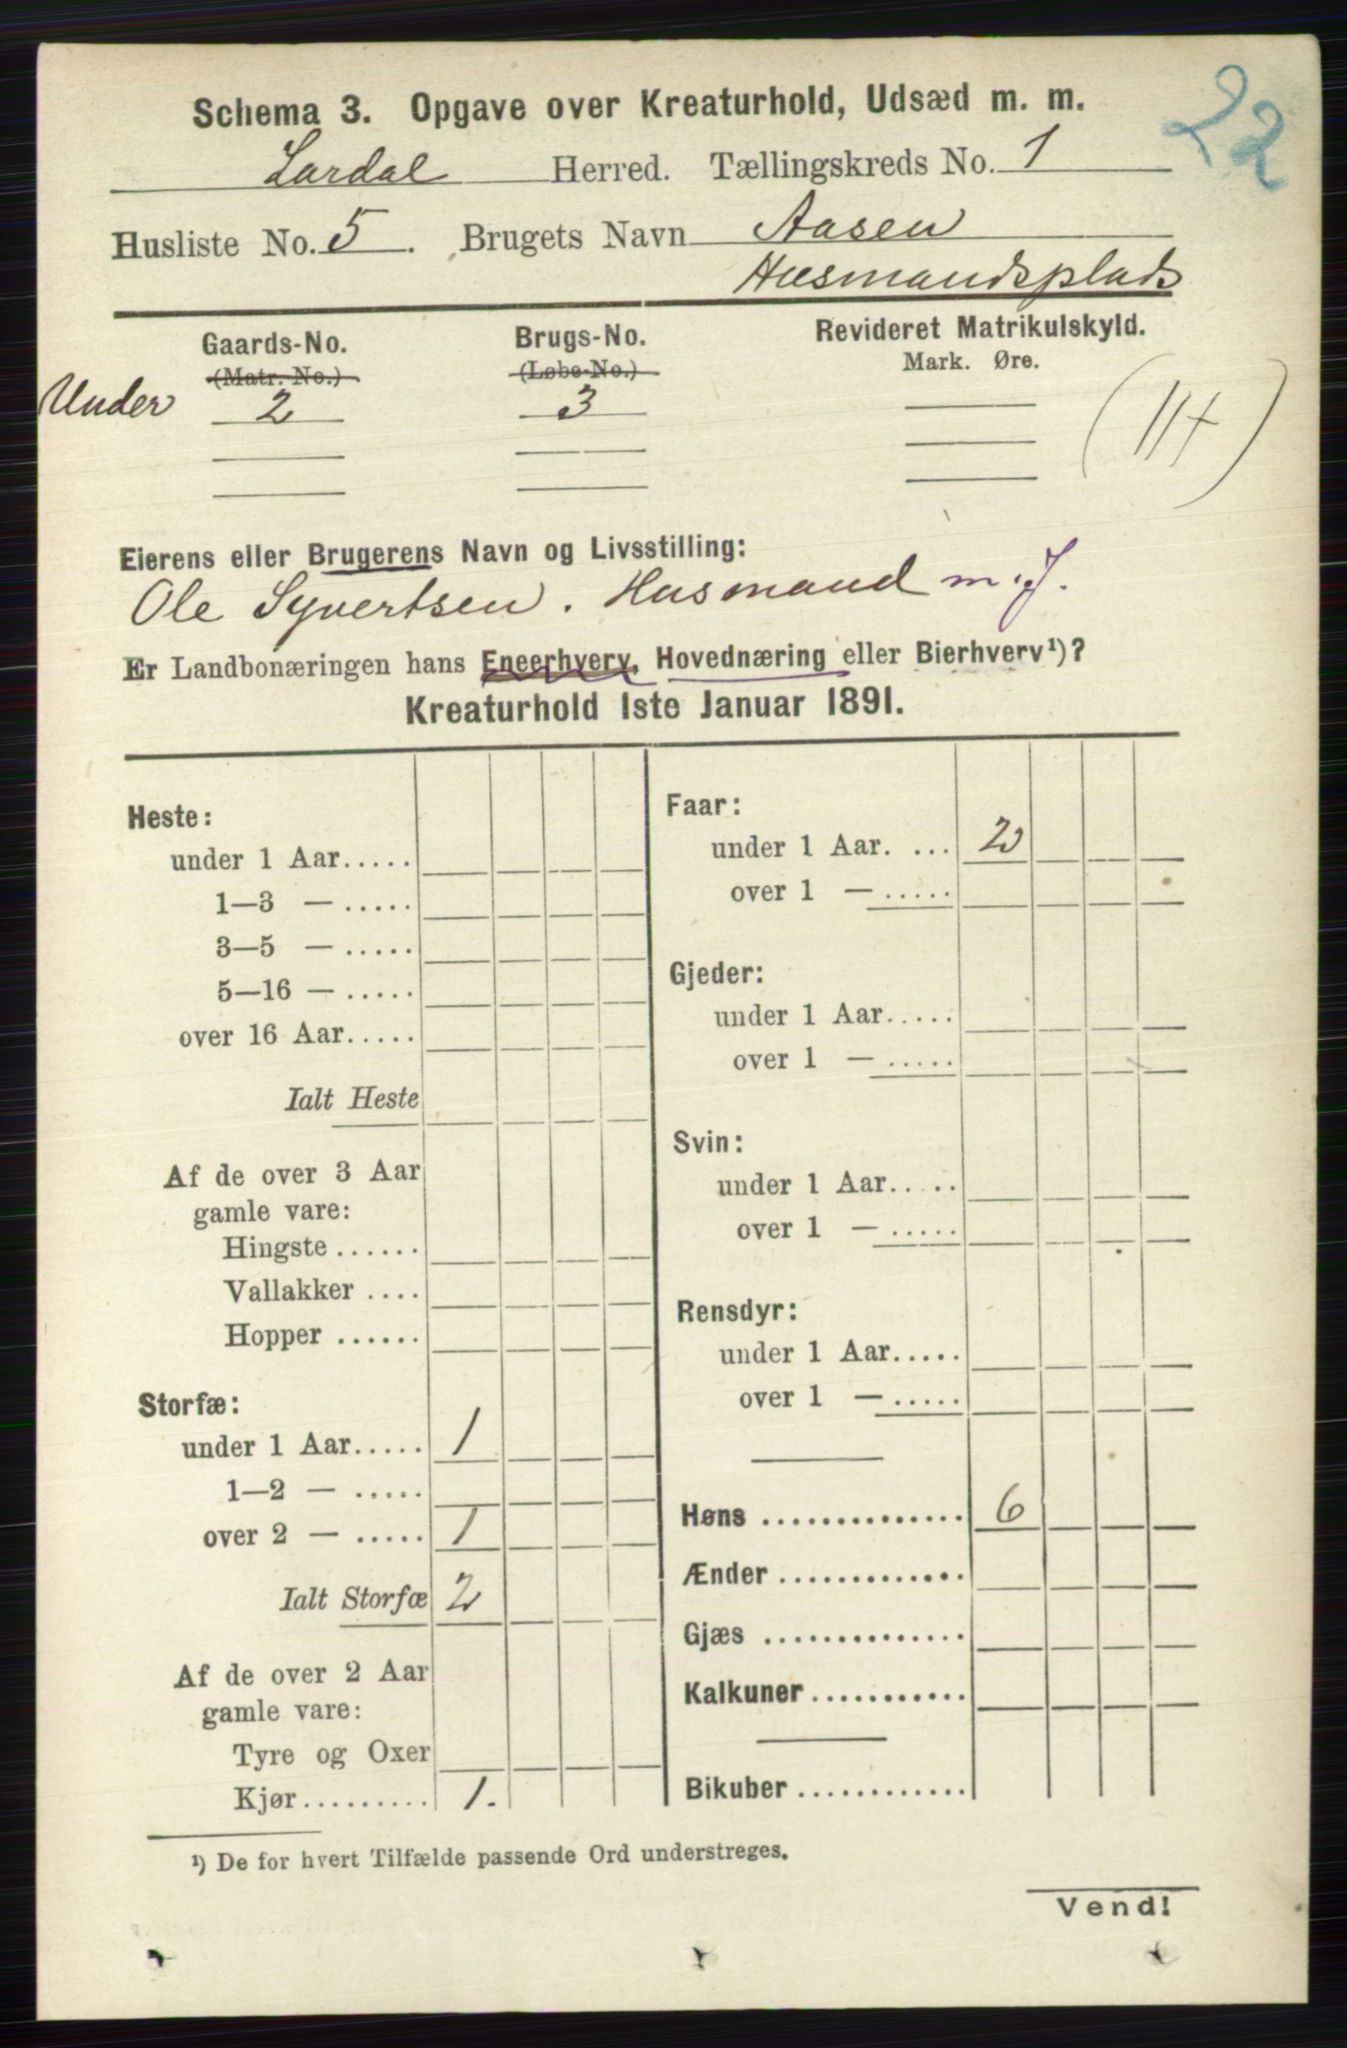 22
Schema 3. Opgave over Kreaturhold, Udsæd m. m.
Lardal Herred. Tællingskreds No. 1
Husliste No. 5. Brugets Navn Aasen
Husmandsplads
Gaards-No. Brugs-No. Revideret Matrikulskyld.
(Matr. No.) (Løbe-No.) Mark. Øre.
Under 2 3
Eierens eller Brugerens Navn og Livsstilling:
Ole Syvertsen. Husmand m. J.
Er Landbonæringen hans Eneerhverv, Hovednæring eller Bierhverv¹)?
Kreaturhold 1ste Januar 1891.
Heste:
under 1 Aar.....
1—3 — .....
3—5 — .....
5—16 — .....
over 16 Aar.....
Ialt Heste
Af de over 3 Aar
gamle vare:
Hingste ......
Vallakker ....
Hopper ......
Storfæ:
under 1 Aar..... 1
1—2 — .....
over 2 — ..... 1
Ialt Storfæ 2
Af de over 2 Aar
gamle vare:
Tyre og Oxer
Kjør......... 1.
Faar:
under 1 Aar. ... 2
over 1 — .....
Gjeder:
under 1 Aar.....
over 1 — .....
Svin:
under 1 Aar.....
over 1 — .....
Rensdyr:
under 1 Aar.....
over 1 — .....
Høns .............. 6
Ænder .............
Gjæs ..............
Kalkuner...........
Bikuber ............
¹) De for hvert Tilfælde passende Ord understreges.
Vend!